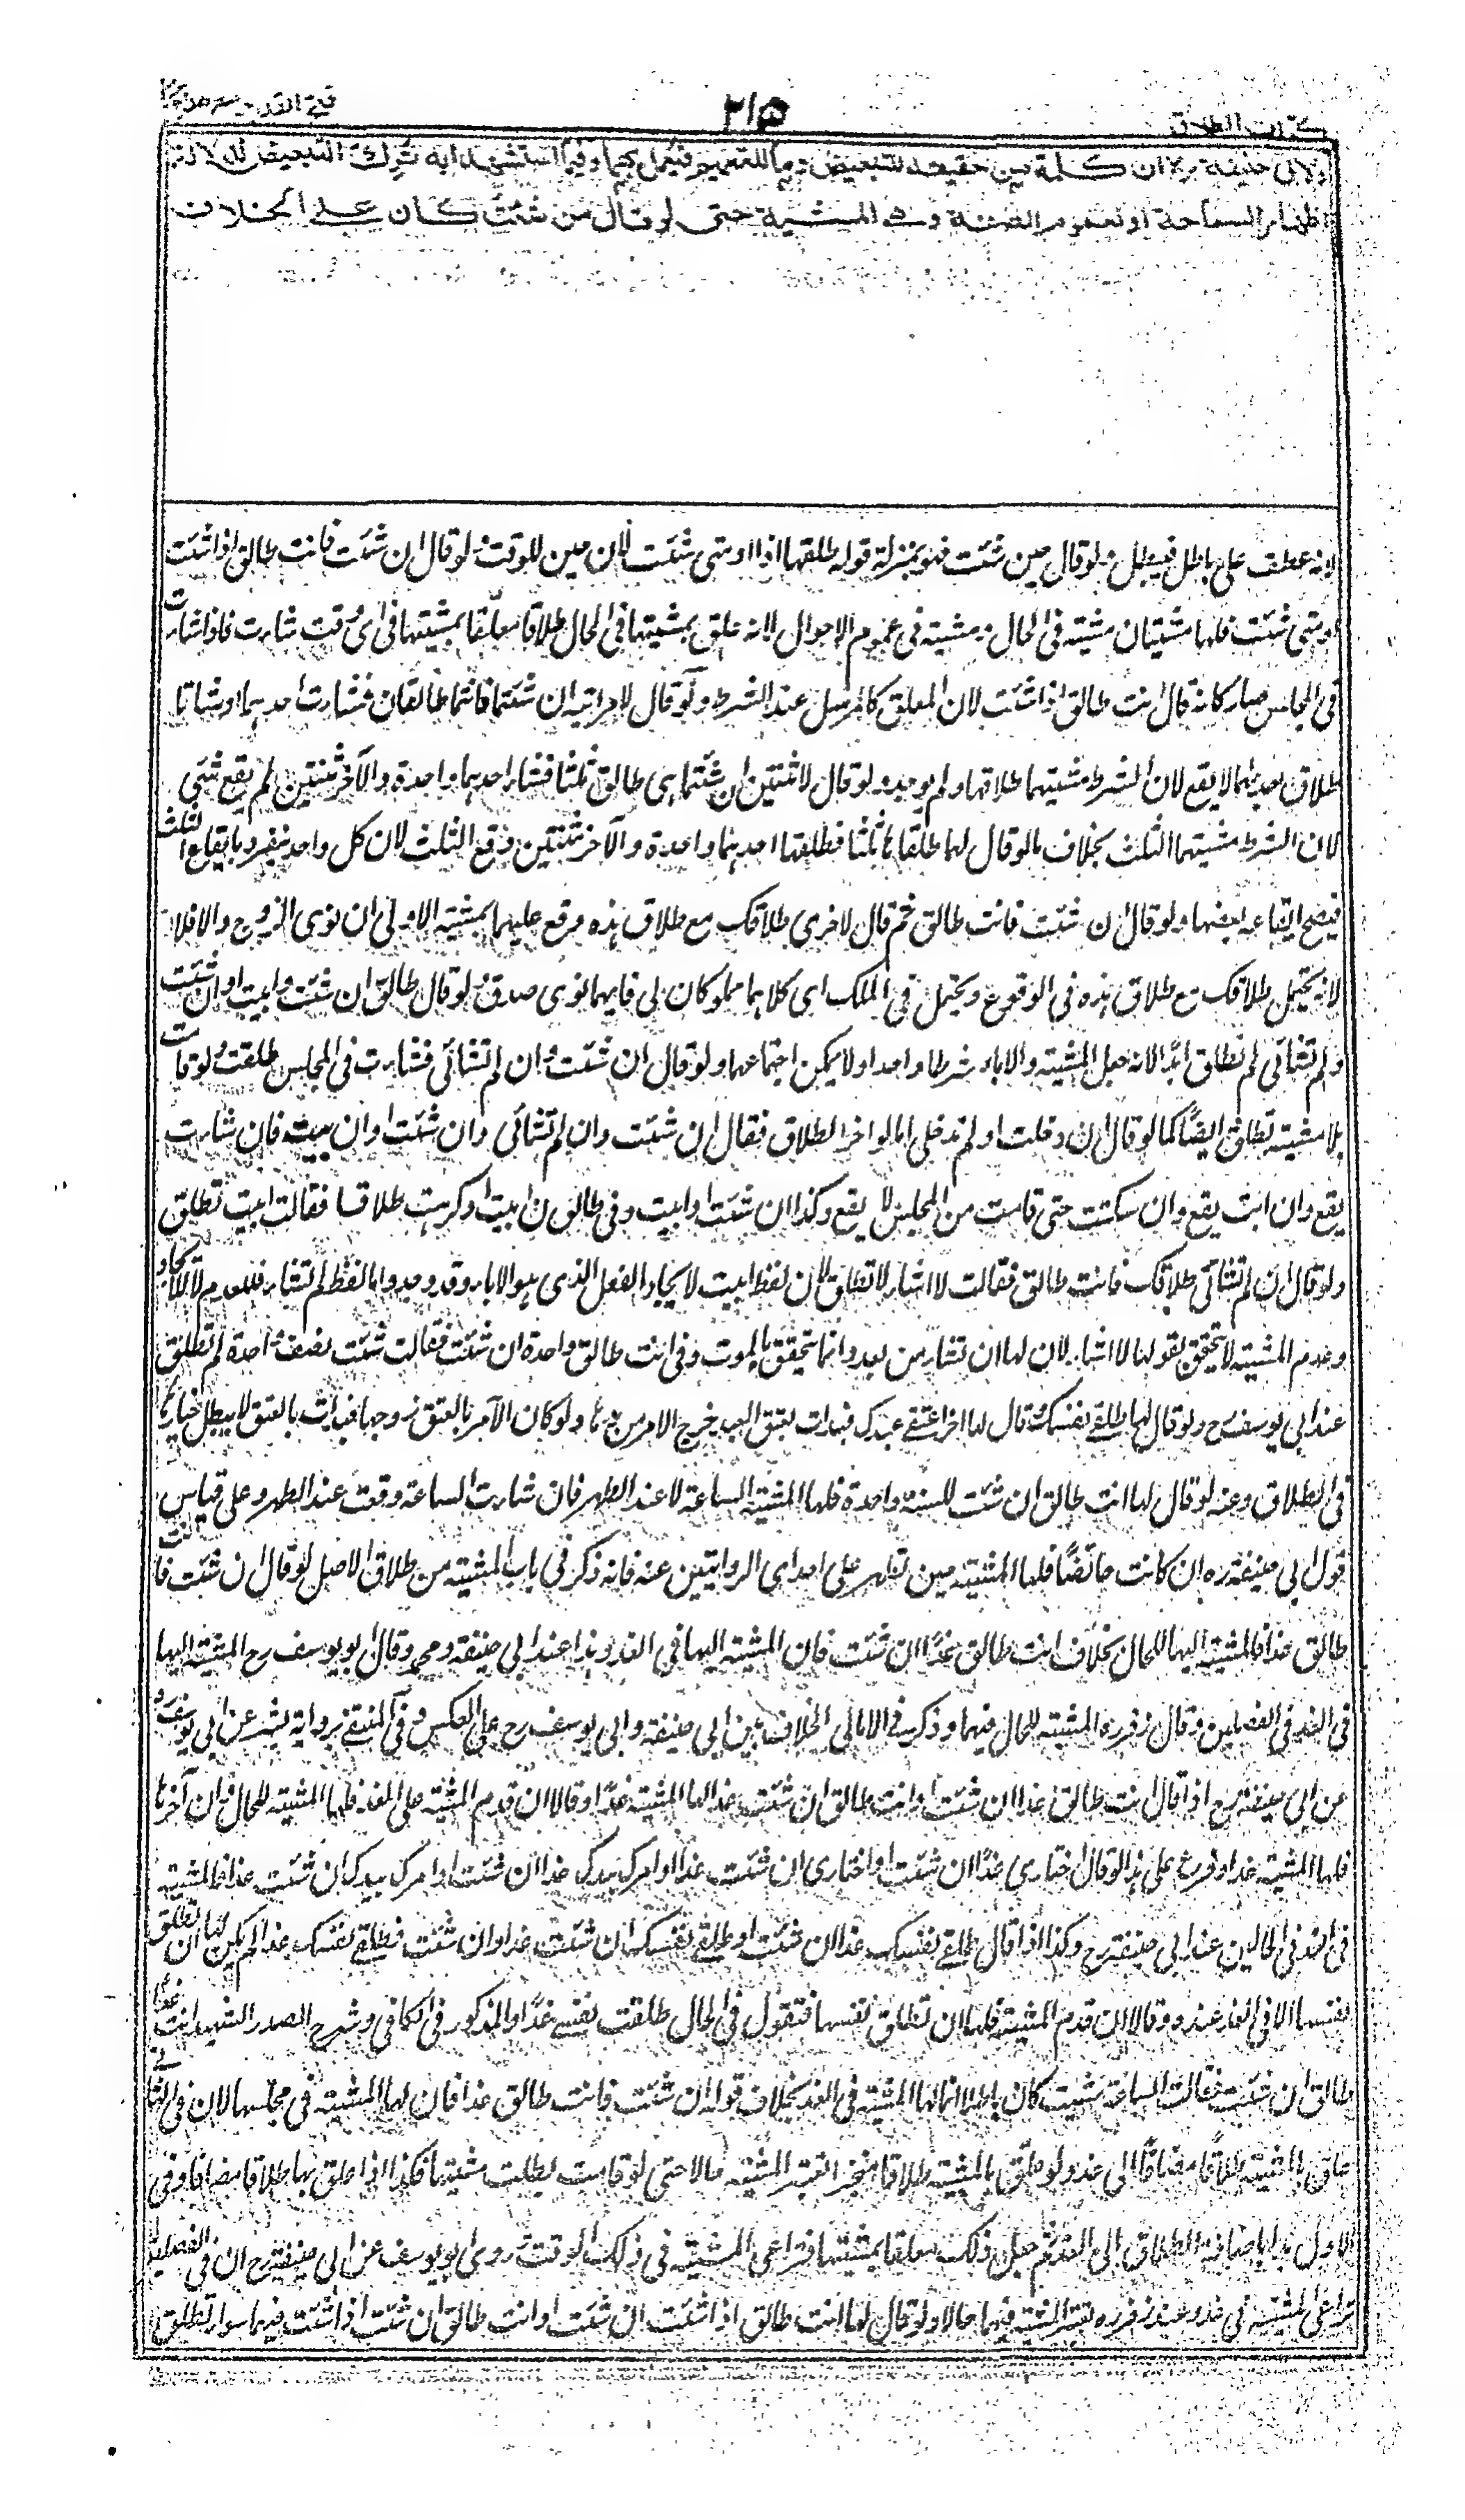 كتاب الطلاق
٢١٥
فتح القدير
ولابي حنيفة رح ان كلمة من حقيقة للتبعيض وما للتعميم فيعمل بهما وفيما استشهدا به ترك التبعيض لدلالة
اظهار السماحة او لعموم الصفة وهي المشية حتى لو قال من شئت كان على الخلاف
لانه عطف على باطل فيبطل ولو قال حين شئت فهو بمنزلة قوله طلقها اذا او متى شئت لان حين للوقت ولو قال ان شئت فانت طالق اذا شئت
او متى شئت فلها مشيتان مشية في الحال ومشية في عموم الاحوال لانه علق بمشيتها في الحال طلاقا معلقا بمشيتها في اى وقت شاءت فاذا شاءت
في المجلس صار كانه قال انت طالق اذا شئت لان المعلق كالمرسل عند الشرط ولو قال لامراتيه ان شئتما فانتما طالقان فشاءت احدهما او شاءتا
طلاق احدهما لا يقع لان الشرط مشيتهما طلاقها ولم يوجد ولو قال لاثنتين ان شئتما هى طالق ثلثا فشاء احدهما واحدة والآخر ثنتين لم يقع شئ
لان الشرط مشيتهما الثلث بخلاف ما لو قال لهما طلقاها ثلثا فطلقها احدهما واحدة والآخر ثنتين وقع الثلث لان كل واحد ينفرد بايقاع الثلث
فيصح ايقاعه بعضها ولو قال ان شئت فانت طالق ثم قال لاخرى طلاقك مع طلاق هذه وقع عليهما بمشية الاولى ان نوى الزوج والا فلا
لانه يحتمل طلاقك مع طلاق هذه في الوقوع ويحتمل في الملك اى كلاهما مملوكان لى فايهما نوى صدق ولو قال طالق ان شئت وابيت او ان شئت
ولم تشائى لم تطلق ابدا لانه جعل المشية والاباء شرطا واحدا ولا يمكن اجتماعهما ولو قال ان شئت وان لم تشائى فشاءت في المجلس طلقت ولو قامت
بلا مشية تطلق ايضا كما لو قال ان دخلت او لم تدخلى اما لو اخر الطلاق فقال ان شئت وان لم تشائى وان شئت او ان ابيت فان شاءت
يقع وان ابت يقع وان سكتت حتى قامت من المجلس لا يقع وكذا ان شئت او ابيت وفي طالق ان ابيت او كرهت طلاقا فقالت ابيت تطلق
ولو قال ان لم تشائى طلاقك فانت طالق فقالت لا اشاء لا تطلق لان لفظ ابيت لايجاد الفعل الذى هو الاباء وقد وجد واما لفظ لم تشاء فللعدم لا للايجاد
وعدم المشية لا يتحقق بقولها لا اشاء لان لها ان تشاء من بعد وانما يتحقق بالموت وفي انت طالق واحدة ان شئت فقالت شئت نصف واحدة لم تطلق
عند ابى يوسف رح ولو قال لها طلقى نفسك وقال لها اخر اعتقى عبدك فبدات بعتق العبد خرج الامر من يدها ولو كان الآمر بالعتق زوجها فبدات بالعتق لا يبطل خيارها
في الطلاق وعنه لو قال لها انت طالق ان شئت للسنة واحدة فلها المشية الساعة لا عند الطهر فان شاءت الساعة وقعت عند الطهر وعلى قياس
قول ابى حنيفة ره ان كانت حائضا فلها المشية حين تطهر على احدى الروايتين عنه فانه ذكر في باب المشية من طلاق الاصل لو قال ان شئت فانت
طالق غدا فالمشية اليها للحال بخلاف انت طالق غدا ان شئت فان المشية اليها في الغد وهذا عند ابى حنيفة ومحمد وقال ابو يوسف رح المشية اليها
في الغد في الفصلين وقال زفر ره المشية للحال فيهما وذكر في الامالى الخلاف بين ابى حنيفة وابى يوسف رح على العكس وفي المنتقى برواية بشر عن ابى يوسف ره
عن ابى حنيفة رح اذا قال انت طالق غدا ان شئت او انت طالق ان شئت غدا لها المشية غدا وقالا ان قدم المشية على الغد فلها المشية للحال وان اخرها
فلها المشية غدا وفرع على هذا لو قال اختارى غدا ان شئت او اختارى ان شئت غدا او امرك بيدك غدا ان شئت او امرك بيدك ان شئت غدا فالمشية
في الغد في الحالين عند ابى حنيفة رح وكذا اذا قال طلقى نفسك غدا ان شئت او طلقى نفسك ان شئت غدا او ان شئت فطلقى نفسك غدا لم يكن لها ان تطلق
نفسها الا في الغد عنده وقالا ان قدم المشية فلها ان تطلق نفسها فتقول في الحال طلقت نفسى غدا والمذكور في الكافى وشرح الصدر الشهيد انت غدا
طالق ان شئت فقالت الساعة شئت كان باطلا انما لها المشية في الغد بخلاف قوله ان شئت فانت طالق غدا فان لها المشية في مجلسها لان في الثانى
علق بالمشية طلاقا مضافا الى غد ولو علق بالمشية طلاقا منجزا تعتبر المشية حالا حتى لو قامت بطلت مشيتها فكذا اذا علق بها طلاقا مضافا وفى
الاول بدا باضافة الطلاق الى الغد ثم جعل ذلك معلقا بمشيتها فتراعى المشية في ذلك الوقت روى ابو يوسف عن ابى حنيفة رح ان في الفصلين
تراعى المشية في غد وعند زفر ره تعتبر المشية فيهما حالا ولو قال لها انت طالق اذا شئت ان شئت او انت طالق ان شئت اذا شئت فهما سواء تطلق